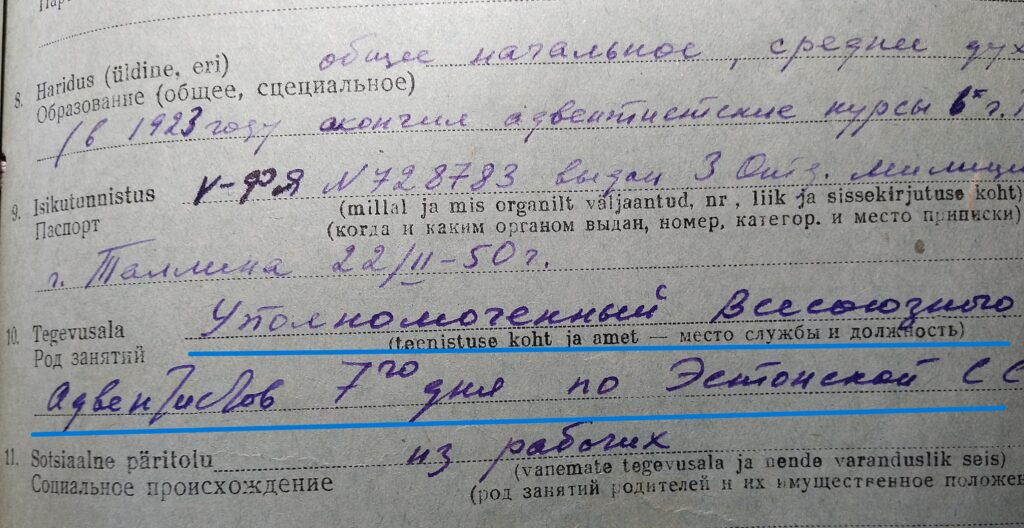 8. Haridus (üldine, eri) общее начальное, среднее дух
Образование (общее, специальное)
/в 1923 году окончил адвентистские курсы в г.
9. Isikutunnistus V-ФЯ N728783 выдан 3 Отд. милици
Паспорт (millal ja mis organilt väljaantud, nr, liik ja sissekirjutuse koht)
(когда и каким органом выдан, номер, категор. и место приписки)
г. Таллина 22/II-50г.
10. Tegevusala Уполномоченный Всесоюзного
Род занятий (teenistuse koht ja amet — место службы и должность)
адвентистов 7го дня по Эстонской СС
11. Sotsiaalne päritolu из рабочих
Социальное происхождение (vanemate tegevusala ja nende varanduslik seis)
(род занятий родителей и их имущественное положен